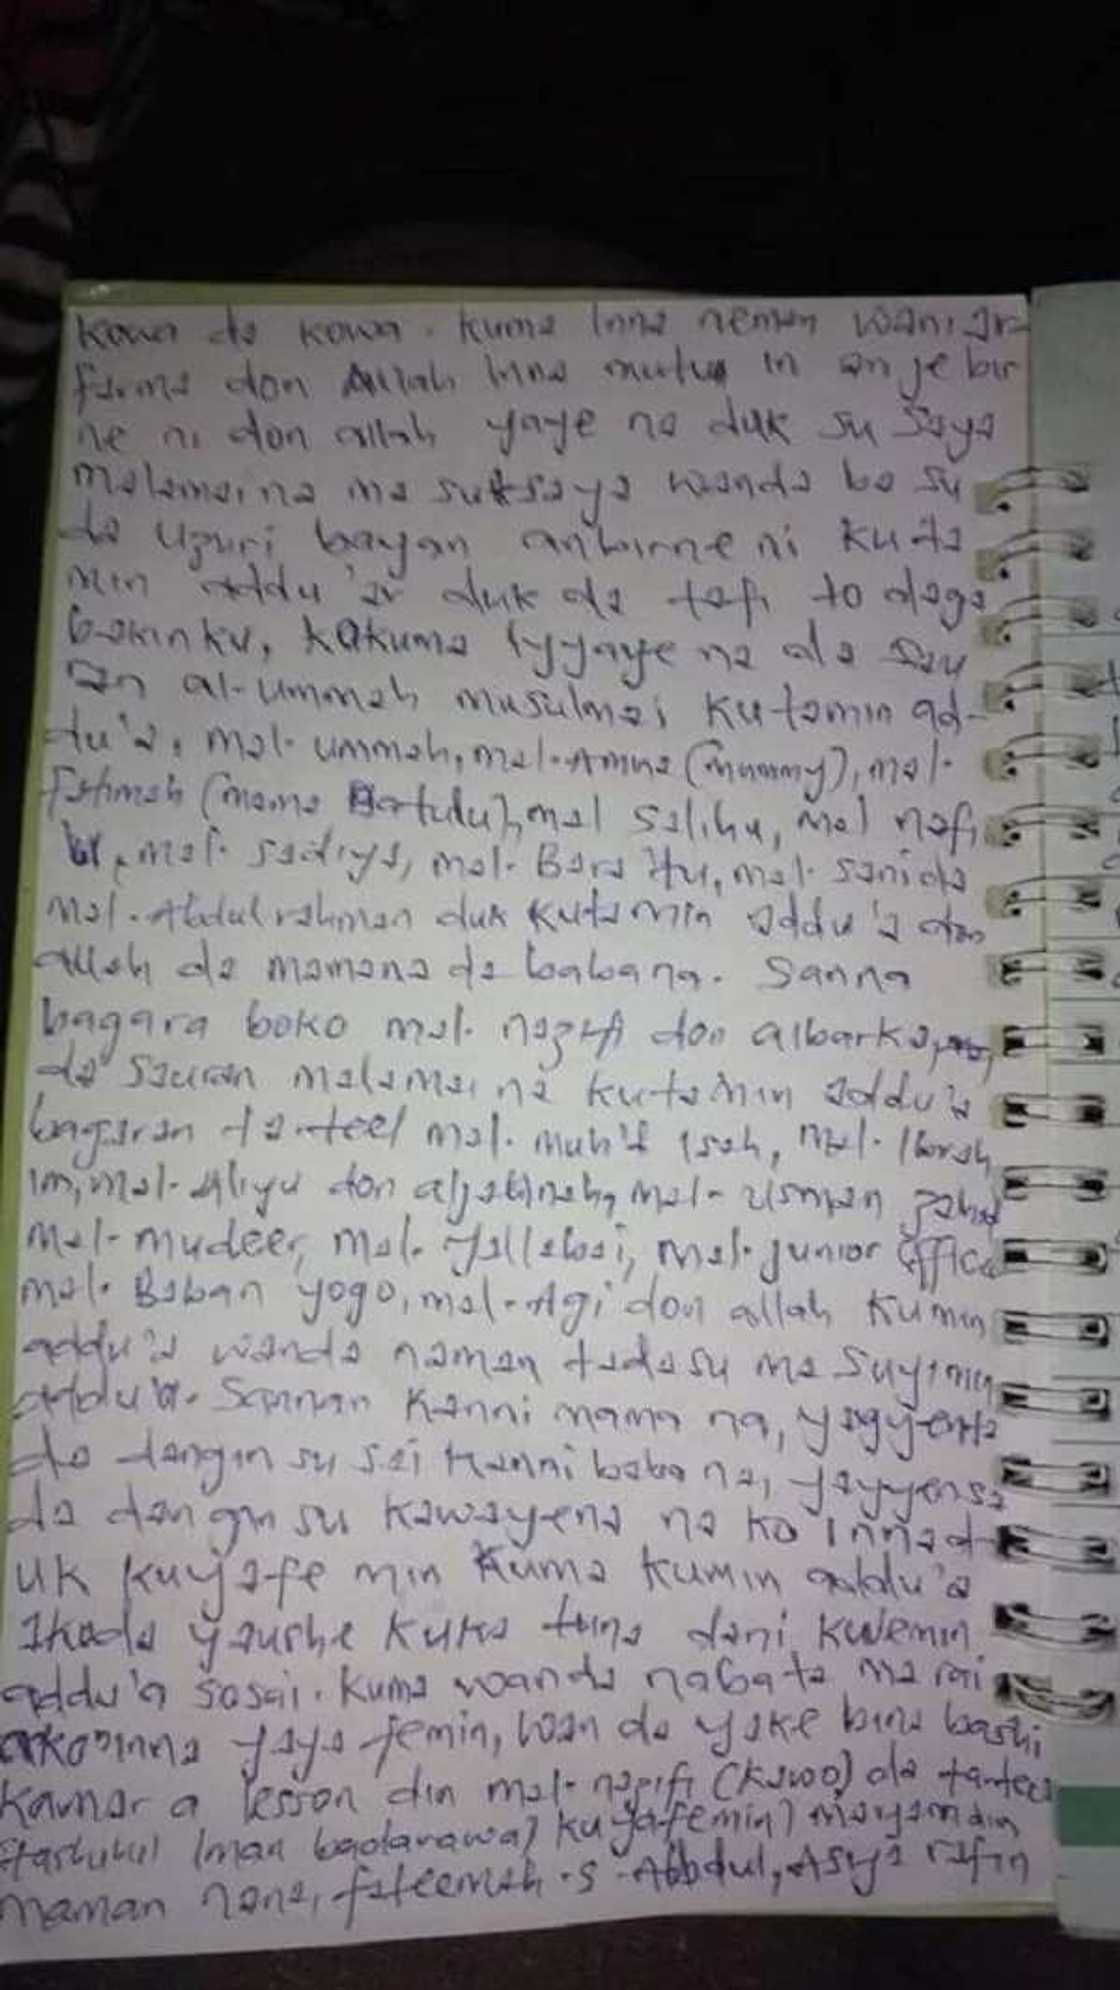 kowa da kowa. kuma Inna neman wani ar-
farma don Allah Inna mutu in an je bir
ne ni don allah yaye na duk su saya
malamai na ma suksaya wanda ba su
da uzuri bayan anbirne ni ku ta
min addu'ar duk da tafi to daga
bakinku, kakuma iyyaye na da sau
ran al-ummah musulmai kutamin ad-
du'a, mal. ummah, mal. Amina (mummy), mal.
Fatimah (mama tutulu), mal salihu, mal nafi
u, mal. sadiya, mal. Bara'atu, mal. sani da
mal. Abdulrahman duk kuta min addu'a don
allah da mamana da babana. Sanna
bagara boko mal. nazifi don albarka,
da sauran malamai na kutamin addu'a
bagaran tarteel mal. muh'd Isah, mal. Ibrah
im, mal. Aliyu don aljannah, mal. usman zahid
mal. mudeer, mal. Yallabai, mal. junior office
mal. Baban yogo, mal. Agi don allah kumin
addu'a wanda naman tadasu ma suyimin
addu'a. Sannan kanni mama na, yayyenta
da dangin su sai kanni baba na, yayyensa
da dangin su kawayena na ko innad
uk kuyafe min kuma kumin addu'a
akoda yaushe kuka tuna dani kuyemin
addu'a sosai. kuma wanda nabata ma rai
ako inna yaya femin, wan da yake bina bashi
kamar a lesson din mal. nazifi (kawo) da tartee
(man badarawa) ku yafemin maryam din
maman nana, fateemah .s. Abdul, Asya rafin